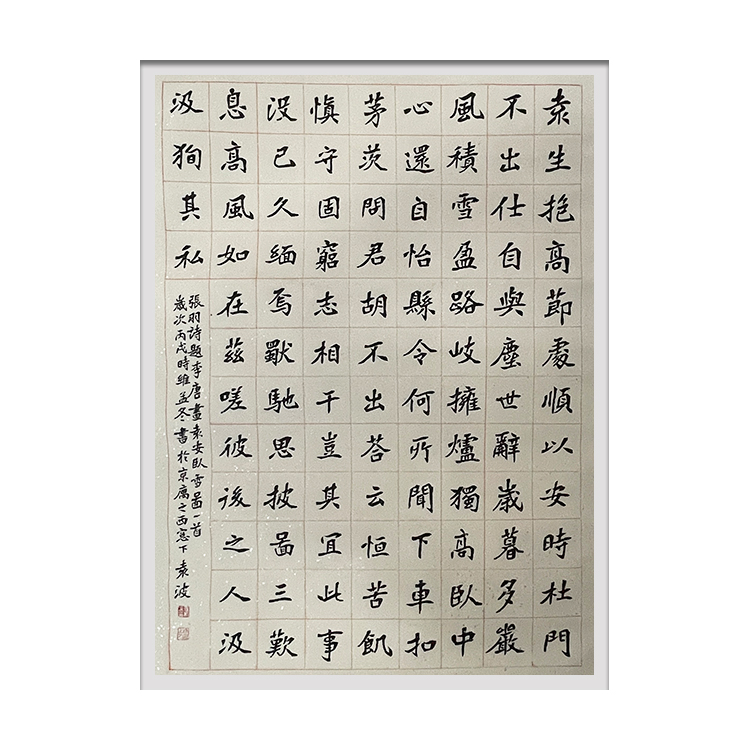 袁生抱高節處順以安時杜門
不出仕自與塵世辭歲暮多嚴
風積雪盈路岐擁爐獨高臥中
心還自怡縣令何所聞下車扣
茅茨問君胡不出荅云恒苦飢
慎守固窮志相干豈其宜此事
没已久緬焉獸馳思披啚三歎
息高風如在茲嗟彼後之人汲
汲狥其私
張羽詩題李唐畫袁安臥雪啚一首
歲次丙戌時維孟冬書於京庽之西窓下 袁波